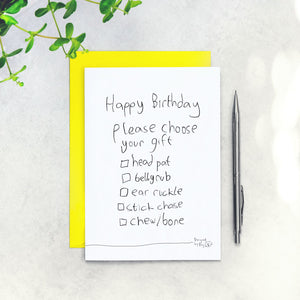 Happy Birthday
please choose
your gift
head pat
bellyrub
ear ruckle
stick chase
chew/bone